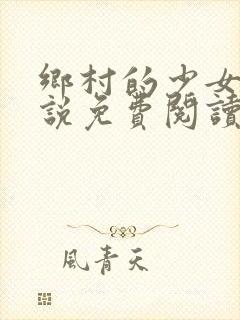 鄉村的少女
說免費閱讀
風青天